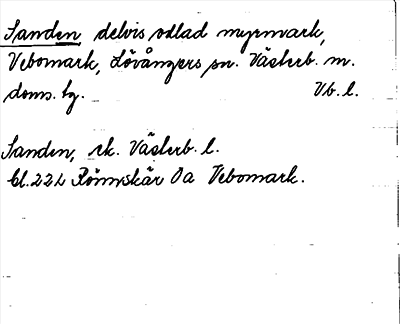 Sanden, delvis odlad myrmark,
Vebomark, Lövångers sn. Västerb. m.
doms. lg. Vb. l.
Sanden, rk. Västerb. l.
Bl. 22 L Rönnskär 0a Vebomark.